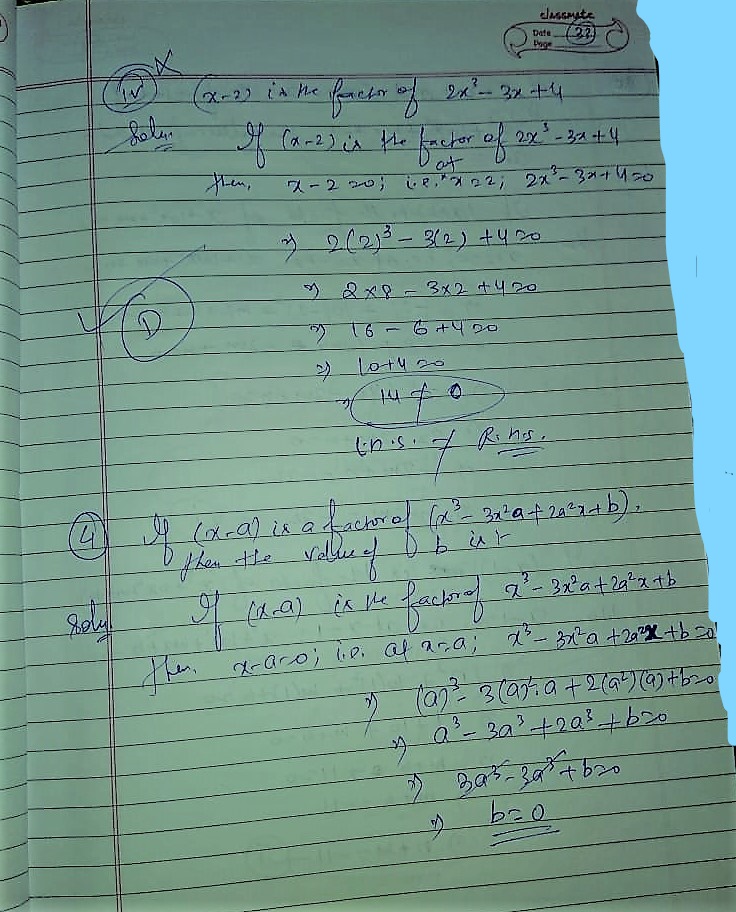 classmate
Date 33
Page
(iv) × (x-2) is the factor of 2x³ - 3x + 4
Soln. If (x-2) is the factor of 2x³ - 3x + 4
then, x - 2 = 0; i.e. at x = 2; 2x³ - 3x + 4 = 0
⇒ 2(2)³ - 3(2) + 4 = 0
⇒ 2×8 - 3×2 + 4 = 0
D ⇒ 16 - 6 + 4 = 0
⇒ 10 + 4 = 0
⇒ 14 ≠ 0
L.H.S. ≠ R.H.S.
(4) If (x-a) is a factor of (x³ - 3x²a + 2a²x + b).
then the value of b is :-
Soln. If (x-a) is the factor of x³ - 3x²a + 2a²x + b
then. x-a=0; i.e. at x=a; x³ - 3x²a + 2a²x + b = 0
⇒ (a)³ - 3(a)².a + 2(a²)(a) + b = 0
⇒ a³ - 3a³ + 2a³ + b = 0
⇒ 3a³ - 3a³ + b = 0
⇒ b = 0